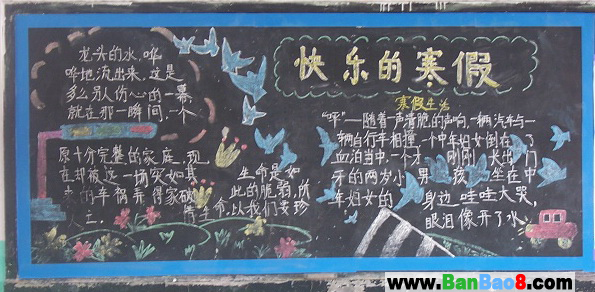 快乐的寒假
寒假生活
"呯"一随着一声清脆的声响,一辆汽车与一
辆自行车相撞,一个中年妇女倒在了
血泊当中.一个才 刚刚 长出门
牙的两岁小 男 孩 坐在中
年妇女的 身边 哇哇大哭,
眼泪像开了水
龙头的水,哗
哗地流出来,这是
多么别人伤心的一幕,
就在那一瞬间,一个
原十分完整的家庭,现
在却被这一场突如其
来的车祸弄得家破
人亡.
生命是如
此的脆弱,所
以我们要珍
惜生命.
www.BanBao8.com